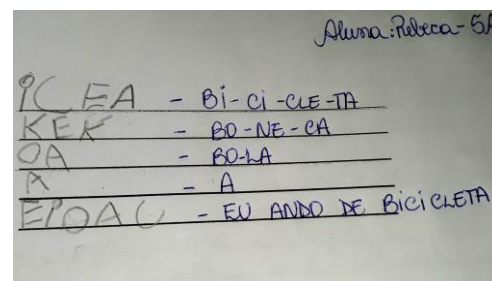 Aluna: Rebeca - 5A
ICEA - Bi - Ci - CLE - TA
KEK - BO - NE - CA
OA - BO - LA
A - A
EIOAC - EU ANDO DE BiCiCLETA